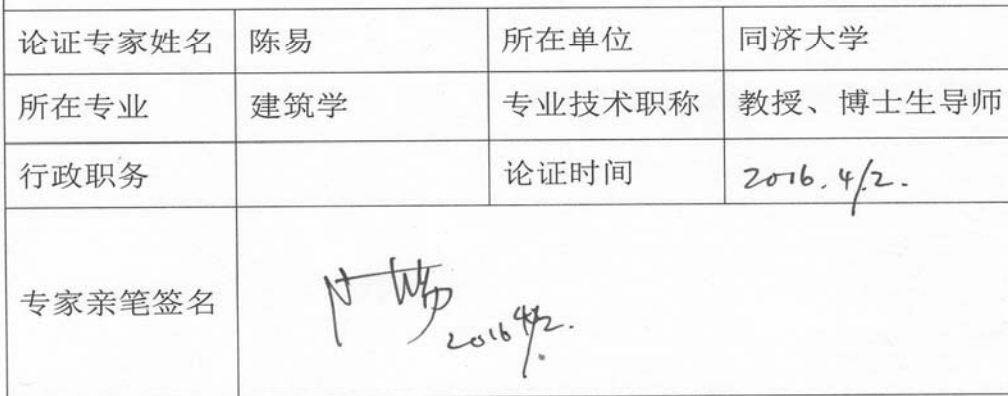 论证专家姓名 陈易 所在单位 同济大学
所在专业 建筑学 专业技术职称 教授、博士生导师
行政职务 论证时间 2016.4/2.
专家亲笔签名
2016 4/2.